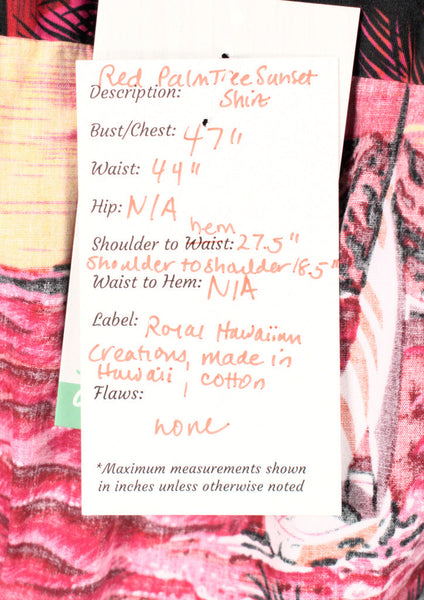 Red Palm Tree Sunset
Description: Shirt
Bust/Chest: 47"
Waist: 44"
Hip: N/A
hem
Shoulder to Waist: 27.5"
Shoulder to shoulder 18.5"
Waist to Hem: N/A
Label: Royal Hawaiian
Creations, made in
Hawaii, cotton
Flaws:
none
*Maximum measurements shown
in inches unless otherwise noted